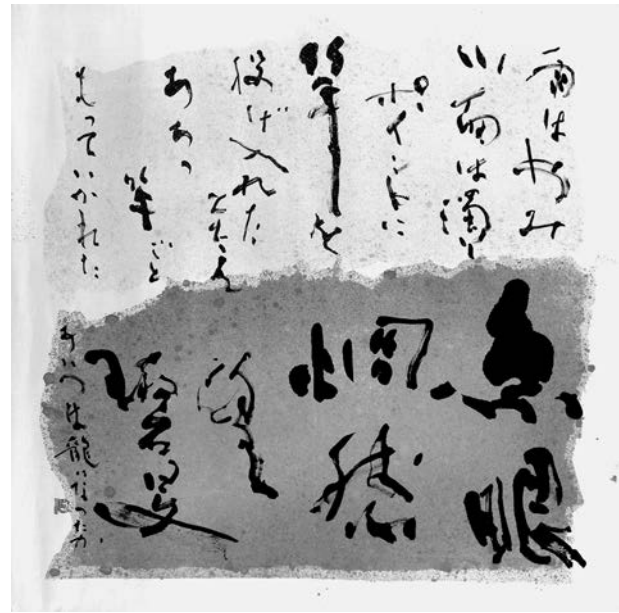 雨は止み
川面は濁り
ポイントに
竿を
投げ入れた
とたん
ああっ
竿ごと
もっていかれた
魚
惘然
望
あいつは龍だったか